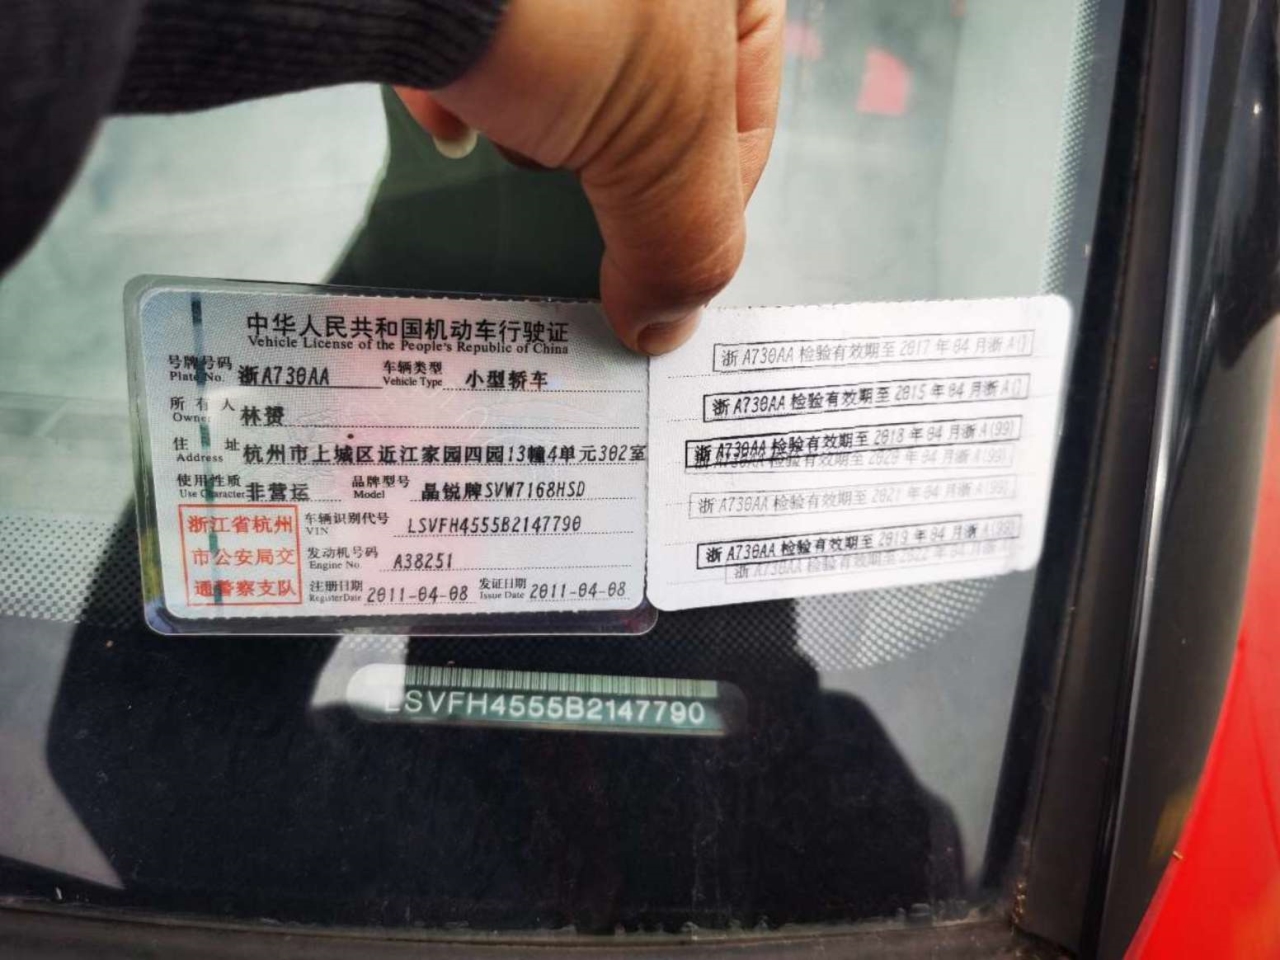 中华人民共和国机动车行驶证
Vehicle License of the People's Republic of China
号牌号码 浙A730AA 车辆类型 小型轿车
Plate No. Vehicle Type
所有人 林赟
Owner
住址 杭州市上城区近江家园四园13幢4单元302室
Address
使用性质 非营运 品牌型号 晶锐牌SVW7168HSD
Use Character Model
浙江省杭州
市公安局交
通警察支队
车辆识别代号 LSVFH4555B2147790
VIN
发动机号码 A38251
Engine No.
注册日期 2011-04-08 发证日期 2011-04-08
Register Date Issue Date
浙A730AA检验有效期至2017年04月浙A()
浙A730AA检验有效期至2015年04月浙A()
浙A730AA检验有效期至2018年04月浙A(99)
浙A730AA检验有效期至2020年04月浙A(99)
浙A730AA检验有效期至2021年04月浙A(99)
浙A730AA检验有效期至2019年04月浙A(99)
浙A730AA检验有效期至2022年04月浙A
LSVFH4555B2147790